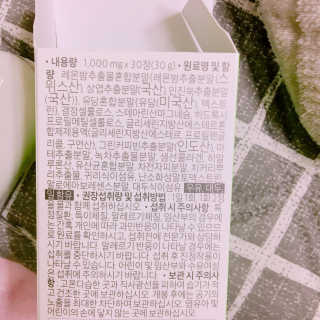 • 내용량 1,000 mg x 30정(30 g) • 원료명 및 함
량 레몬밤추출물혼합분말(레몬밤추출분말(스
위스산), 상엽추출분말(국산), 인진쑥추출분말
(국산)), 유당혼합분말(유당(미국산), 덱스트
린), 결정셀룰로스, 스테아린산마그네슘, 히드록시
프로필메틸셀룰로스, 글리세린지방산에스테르혼
합제제
리콜, 구연산), 그린커피빈추출분말(인도산), 마
테추출분말, 녹차추출물분말, 생선콜라겐, 히알
루론산, 유산균혼합분말, 차전자피분말, 치커리뿌
리추출물, 귀리식이섬유,
알로에아보레센스분말, 대두식이섬유 우유, 대두,
밀 함유 • 권장섭취량 및 섭취방법 1일 1회, 1회 2정
을 물과 함께 섭취하십시오. • 섭취시 주의사항 특
정질환, 특이체질, 알레르기체질, 임산부의 경우에
는 간혹 개인에 따라 과민반응이 나타날 수 있으므
로 원료를 확인하시고, 이상증상이
시기 바랍니다. 알레르기 반응이 나타날 경우에는
섭취를 중단하시기 바랍니다. 섭취 후
는 섭취에 주의하시기 바랍니다. • 보관 시 주의사
항 고온다습한 곳과 직사광선을 피하여 습기가 적
고 건조한 곳에 보관하십시오. 개봉 후에는 공기의
노출을 최대한 차단하여 보관하십시오. 영유아 및
어린이의 손에 닿지 않는 곳에 보관하십시오